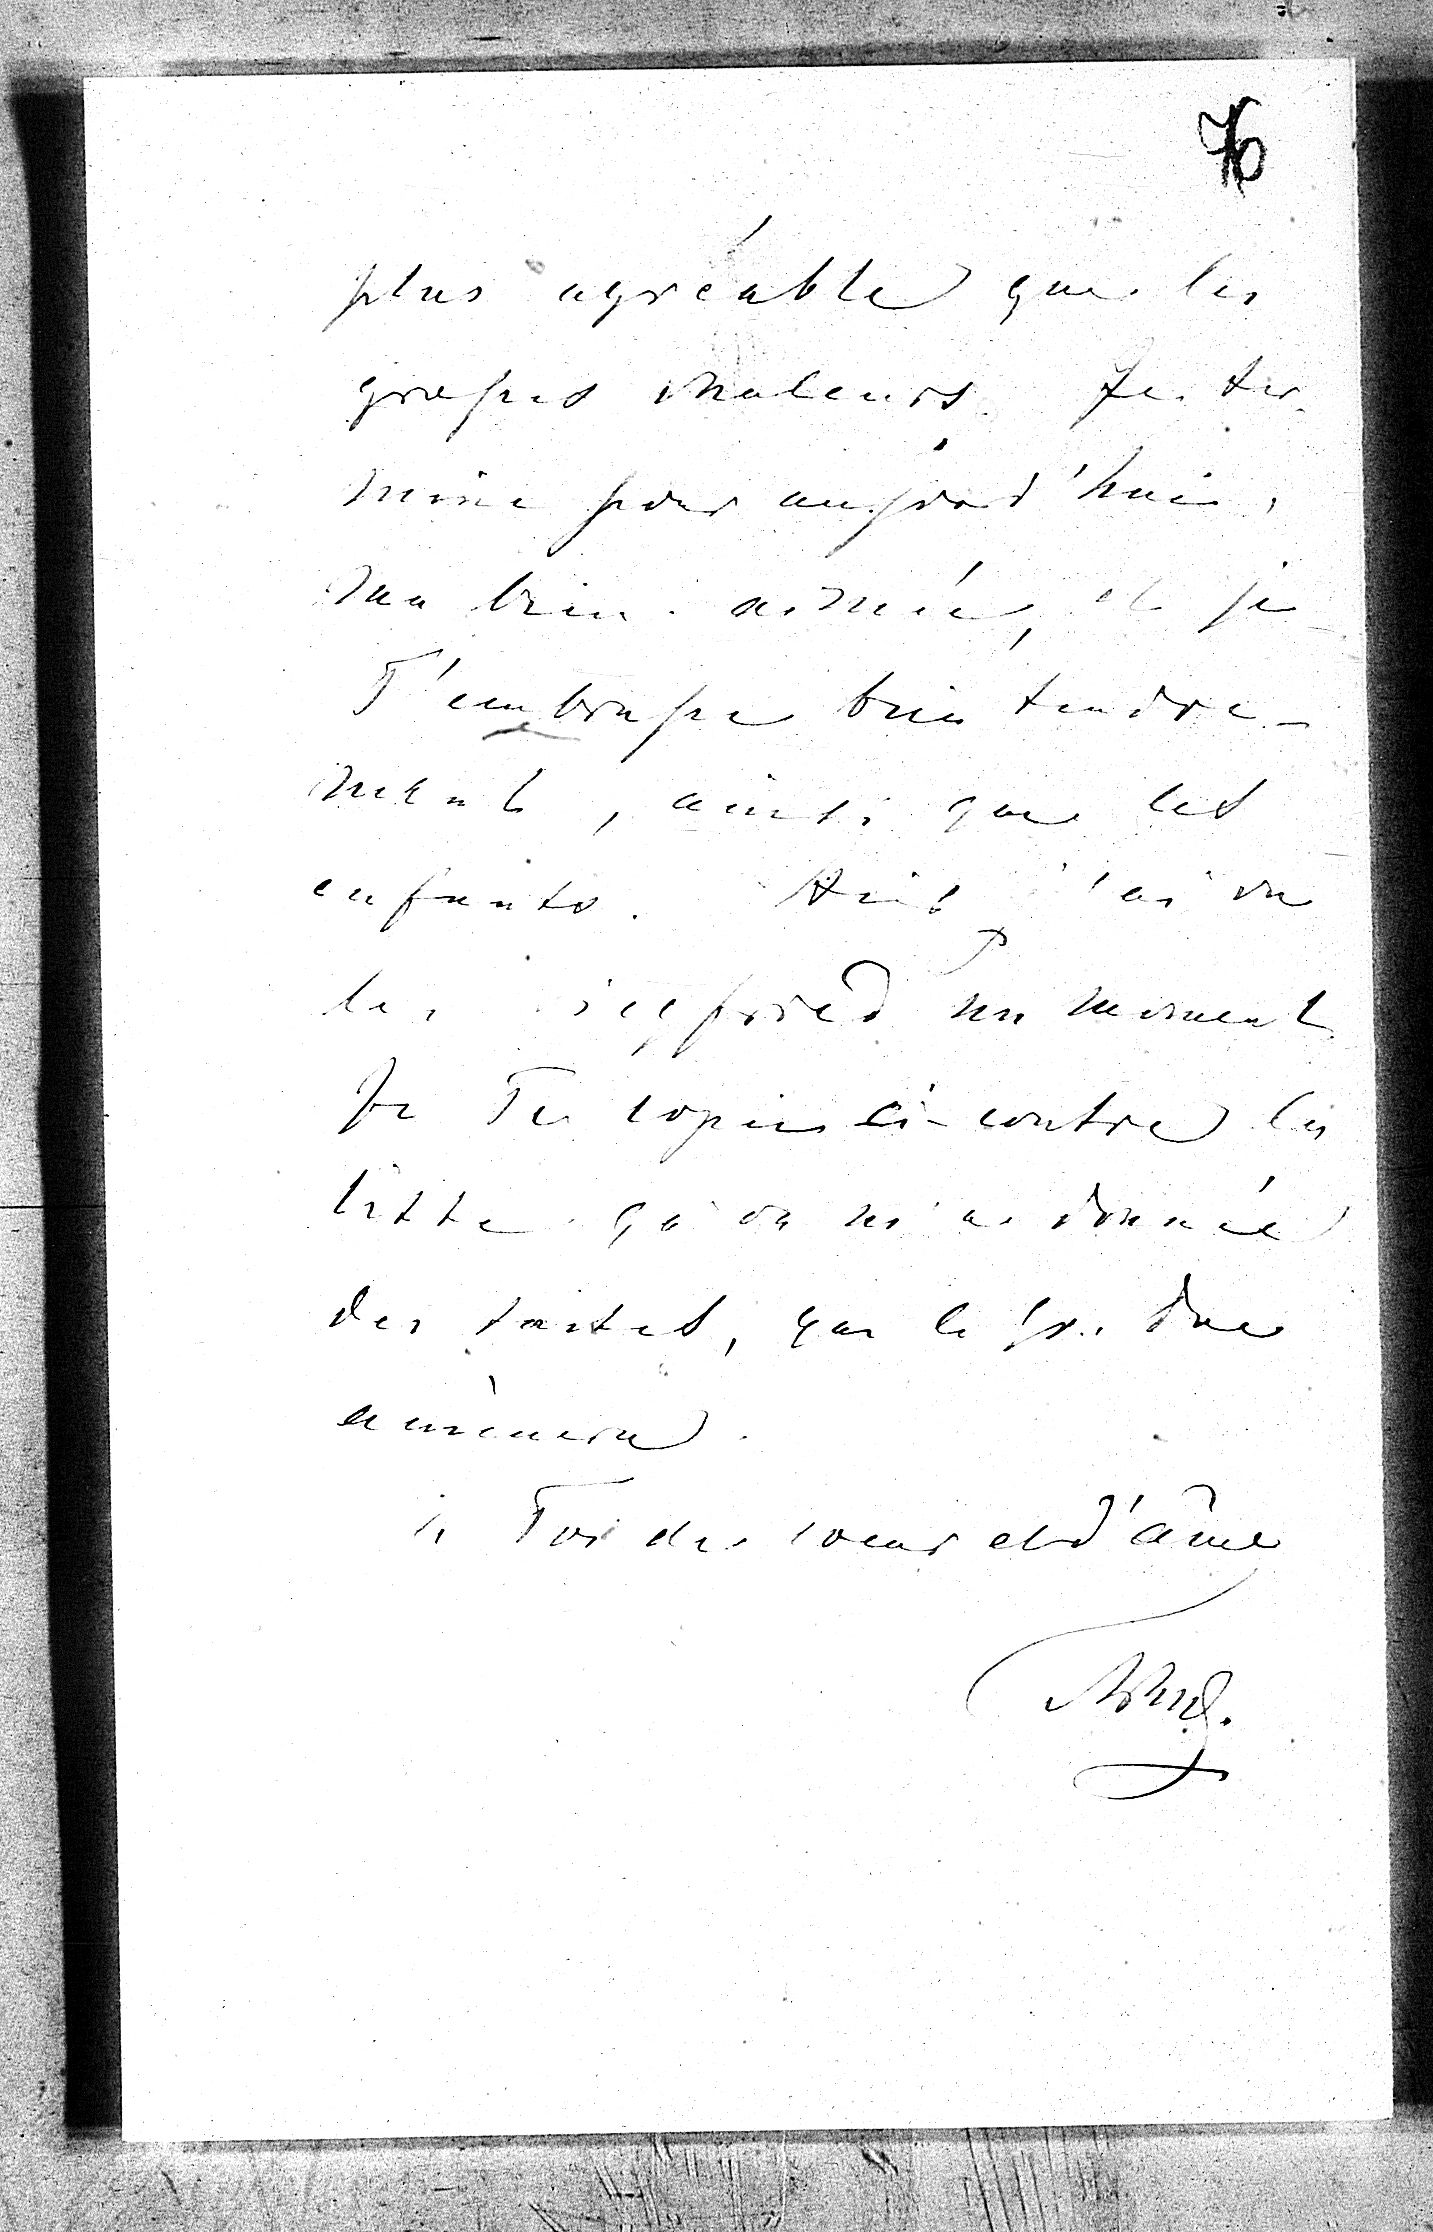 76
plus agréable que les
grosses chaleurs. Je ter-
mine pour aujourd'hui,
ma bien-aimée, et je
T'embrasse bien tendre-
ment, ainsi que les
enfants. Hier j'ai vu
les Siegfried un moment.
Je Te copie ci-contre la
liste qu'on m'a donnée
des suites, que le Gr. Duc
amènera.
à Toi de coeur et d'âme